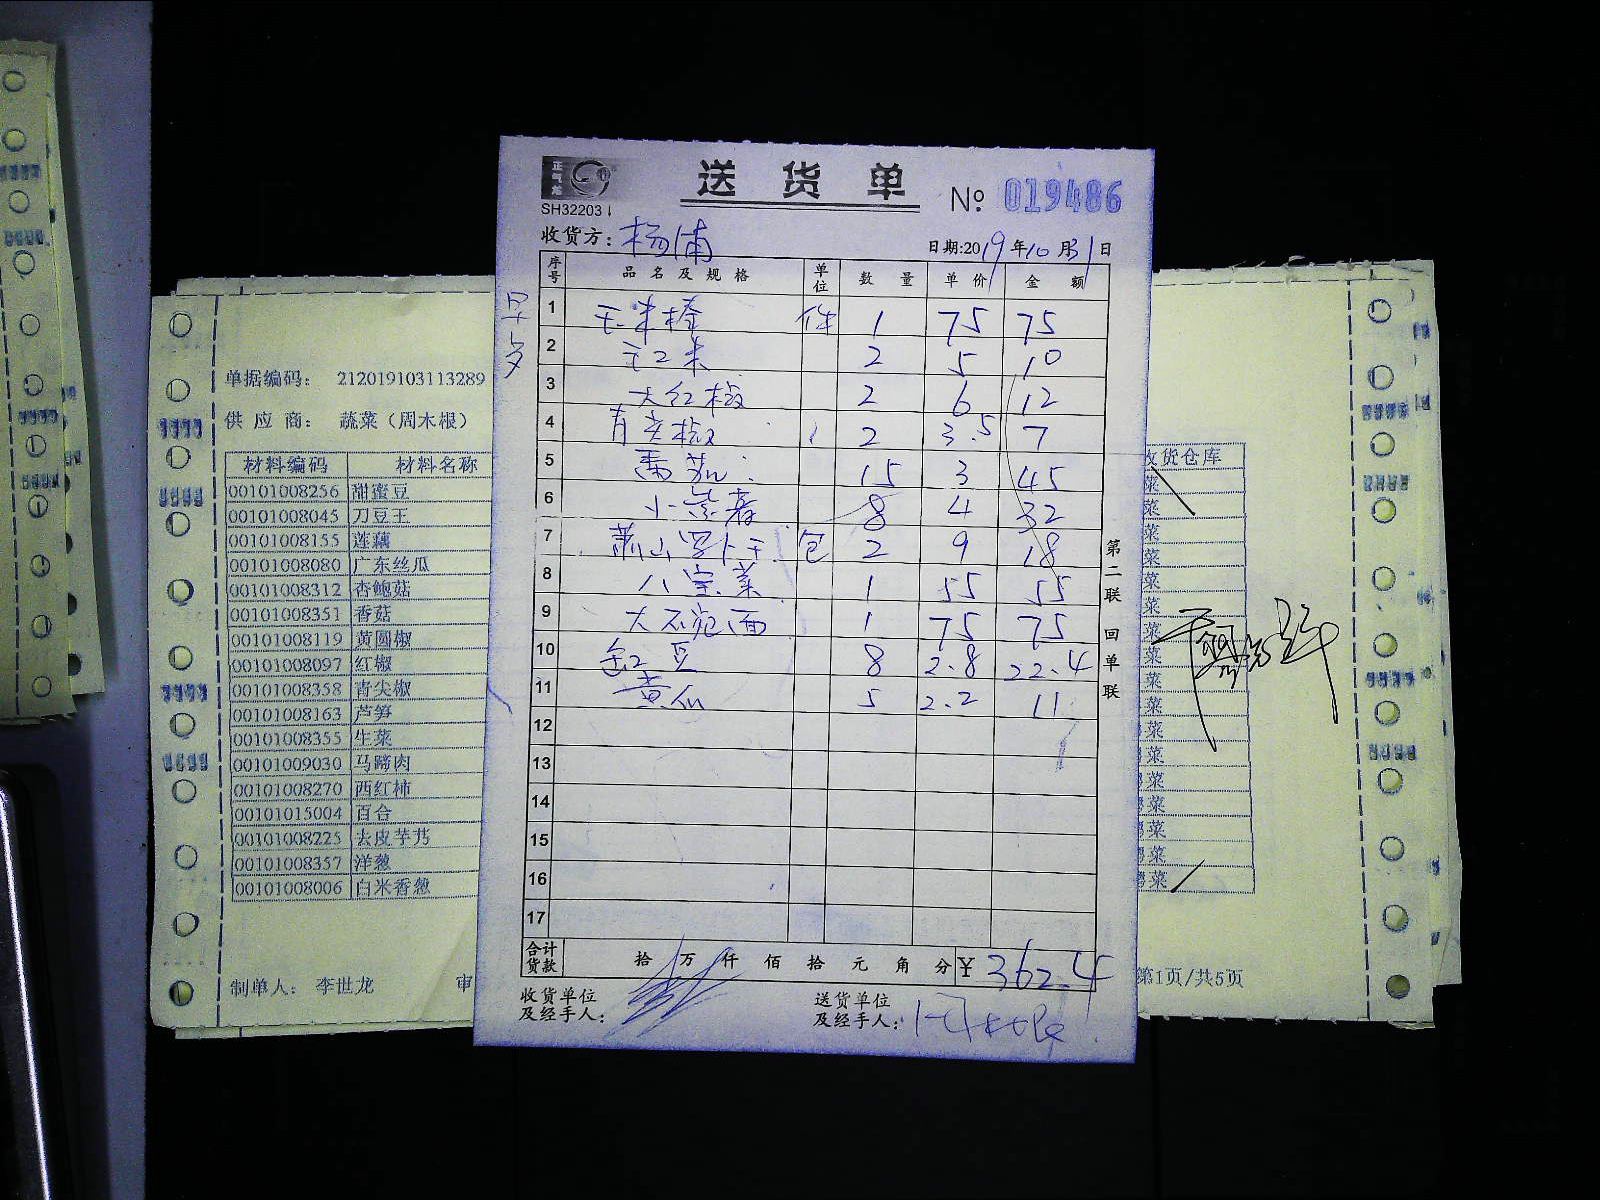 正气龙
SH32203
送货单
№ 019486
收货方：杨浦
日期:2019年10月31日
早点
序号 品名及规格 单位 数量 单价 金额
1 玉米棒 件 1 75 75
2 玉米 2 5 10
3 大红椒 2 6 12
4 青尖椒 2 3.5 7
5 番茄 15 3 45
6 小紫薯 8 4 32
7 萧山罗卜干 包 2 9 18
8 八宝菜 1 55 55
9 1 75 75
10 豆 8 2.8 22.4
11 黄瓜 5 2.2 11
12
13
14
15
16
17
合计货款 拾 万 仟 佰 拾 元 角 分 ¥ 362.4
收货单位及经手人：
送货单位及经手人：周木根
第二联 回单联
单据编码： 212019103113289
供应商： 蔬菜（周木根）
材料编码 材料名称
00101008256 甜蜜豆
00101008045 刀豆王
00101008155 莲藕
00101008080 广东丝瓜
00101008312 杏鲍菇
00101008351 香菇
00101008119 黄圆椒
00101008097 红椒
00101008358 青尖椒
00101008163 芦笋
00101008355 生菜
00101009030 马蹄肉
00101008270 西红柿
00101015004 百合
00101008225 去皮芋艿
00101008357 洋葱
00101008006 白米香葱
制单人： 李世龙
审
收货仓库
菜
菜
菜
菜
菜
菜
菜
菜
菜
菜
菜
菜
菜
菜
菜
菜
菜
第1页/共5页